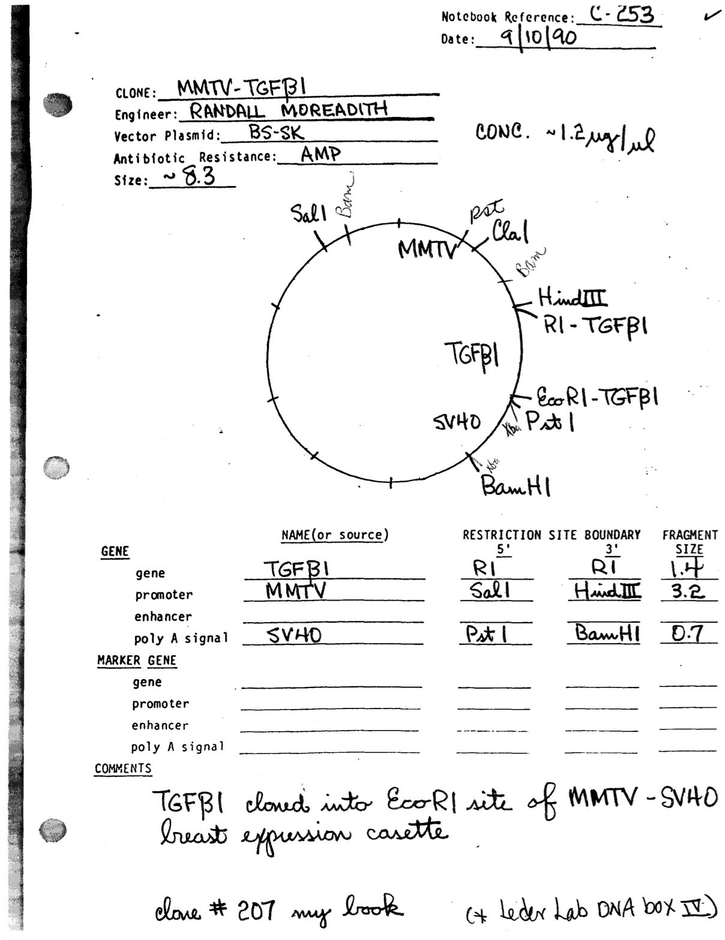 Notebook Reference: C-253 ✓
Date: 9/10/90
CLONE: MMTV-TGFβ1
Engineer: RANDALL MOREADITH
Vector Plasmid: BS-SK
CONC. ~1.2 ug/ul
Antibiotic Resistance: AMP
Size: ~ 8.3
Sal1 Bam Pst
MMTV Cla1
Bam
HindIII
R1-TGFβ1
TGFβ1
EcoR1-TGFβ1
SV40 Xba Pst 1
Xba
BamH1
NAME(or source) RESTRICTION SITE BOUNDARY FRAGMENT
GENE 5' 3' SIZE
gene TGFβ1 R1 R1 1.4
promoter MMTV Sal1 HindIII 3.2
enhancer
poly A signal SV40 Pst 1 BamH1 0.7
MARKER GENE
gene
promoter
enhancer
poly A signal
COMMENTS
TGFβ1 cloned into EcoR1 site of MMTV-SV40
breast expression casette
clone # 207 my book (* Leder Lab DNA box IV.)